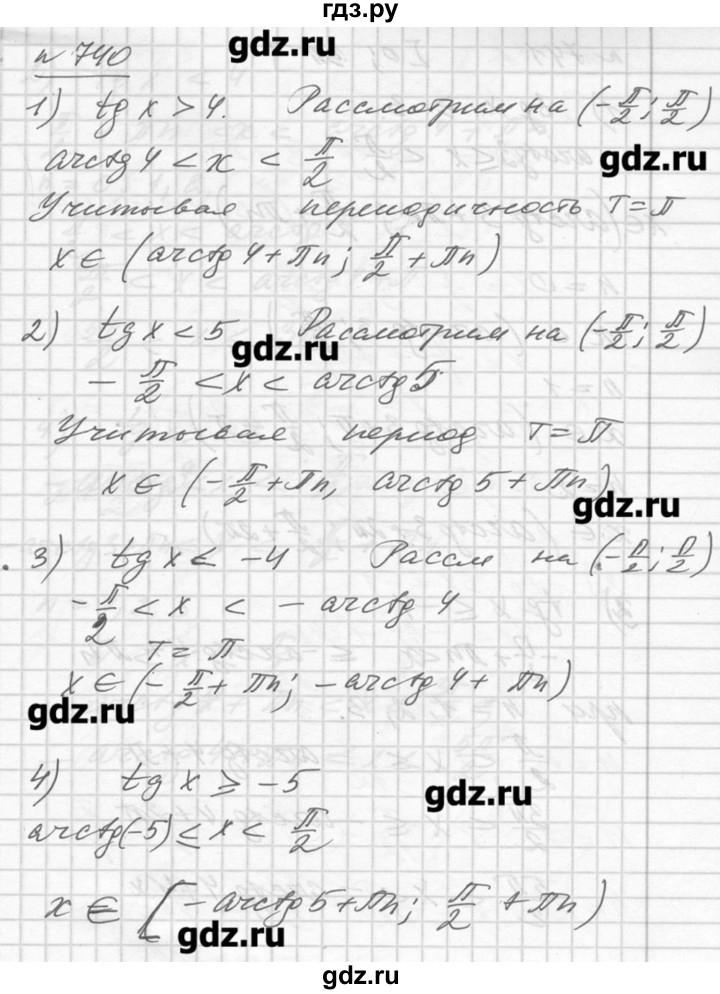 гдз.ру
gdz.ru
n 740
1) tg x > 4. Рассмотрим на (-π/2; π/2)
gdz.ru
arctg 4 < x < π/2
Учитывая периодичность T = π
x ∈ (arctg 4 + πn; π/2 + πn)
2) tg x < 5 Рассмотрим на (-π/2; π/2)
gdz.ru
- π/2 < x < arctg 5
Учитывая период T = π
x ∈ (-π/2 + πn, arctg 5 + πn)
gdz.ru
3) tg x < -4 Рассм на (-π/2; π/2)
-π/2 < x < - arctg 4
T = π
x ∈ (-π/2 + πn; -arctg 4 + πn)
gdz.ru
4) tg x ≥ -5
gdz.ru
arctg(-5) ≤ x < π/2
x ∈ [-arctg 5 + πn; π/2 + πn)
gdz.ru
gdz.ru